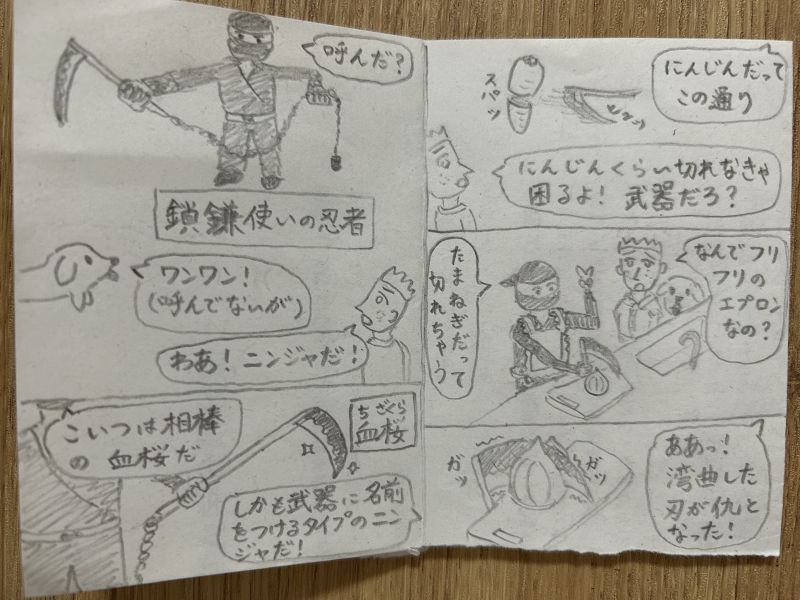 呼んだ?
鎖鎌使いの忍者
ワンワン!
(呼んでないが)
わあ!ニンジャだ!
こいつは相棒
の血桜だ
ちざくら
血桜
しかも武器に名前
をつけるタイプのニン
ジャだ!
にんじんだって
この通り
スパッ
にんじんくらい切れなきゃ
困るよ! 武器だろ?
たまねぎだって
切れちゃう
なんでフリ
フリの
エプロン
なの?
ガッ
ガッ
ああっ!
湾曲した
刃が仇と
なった!